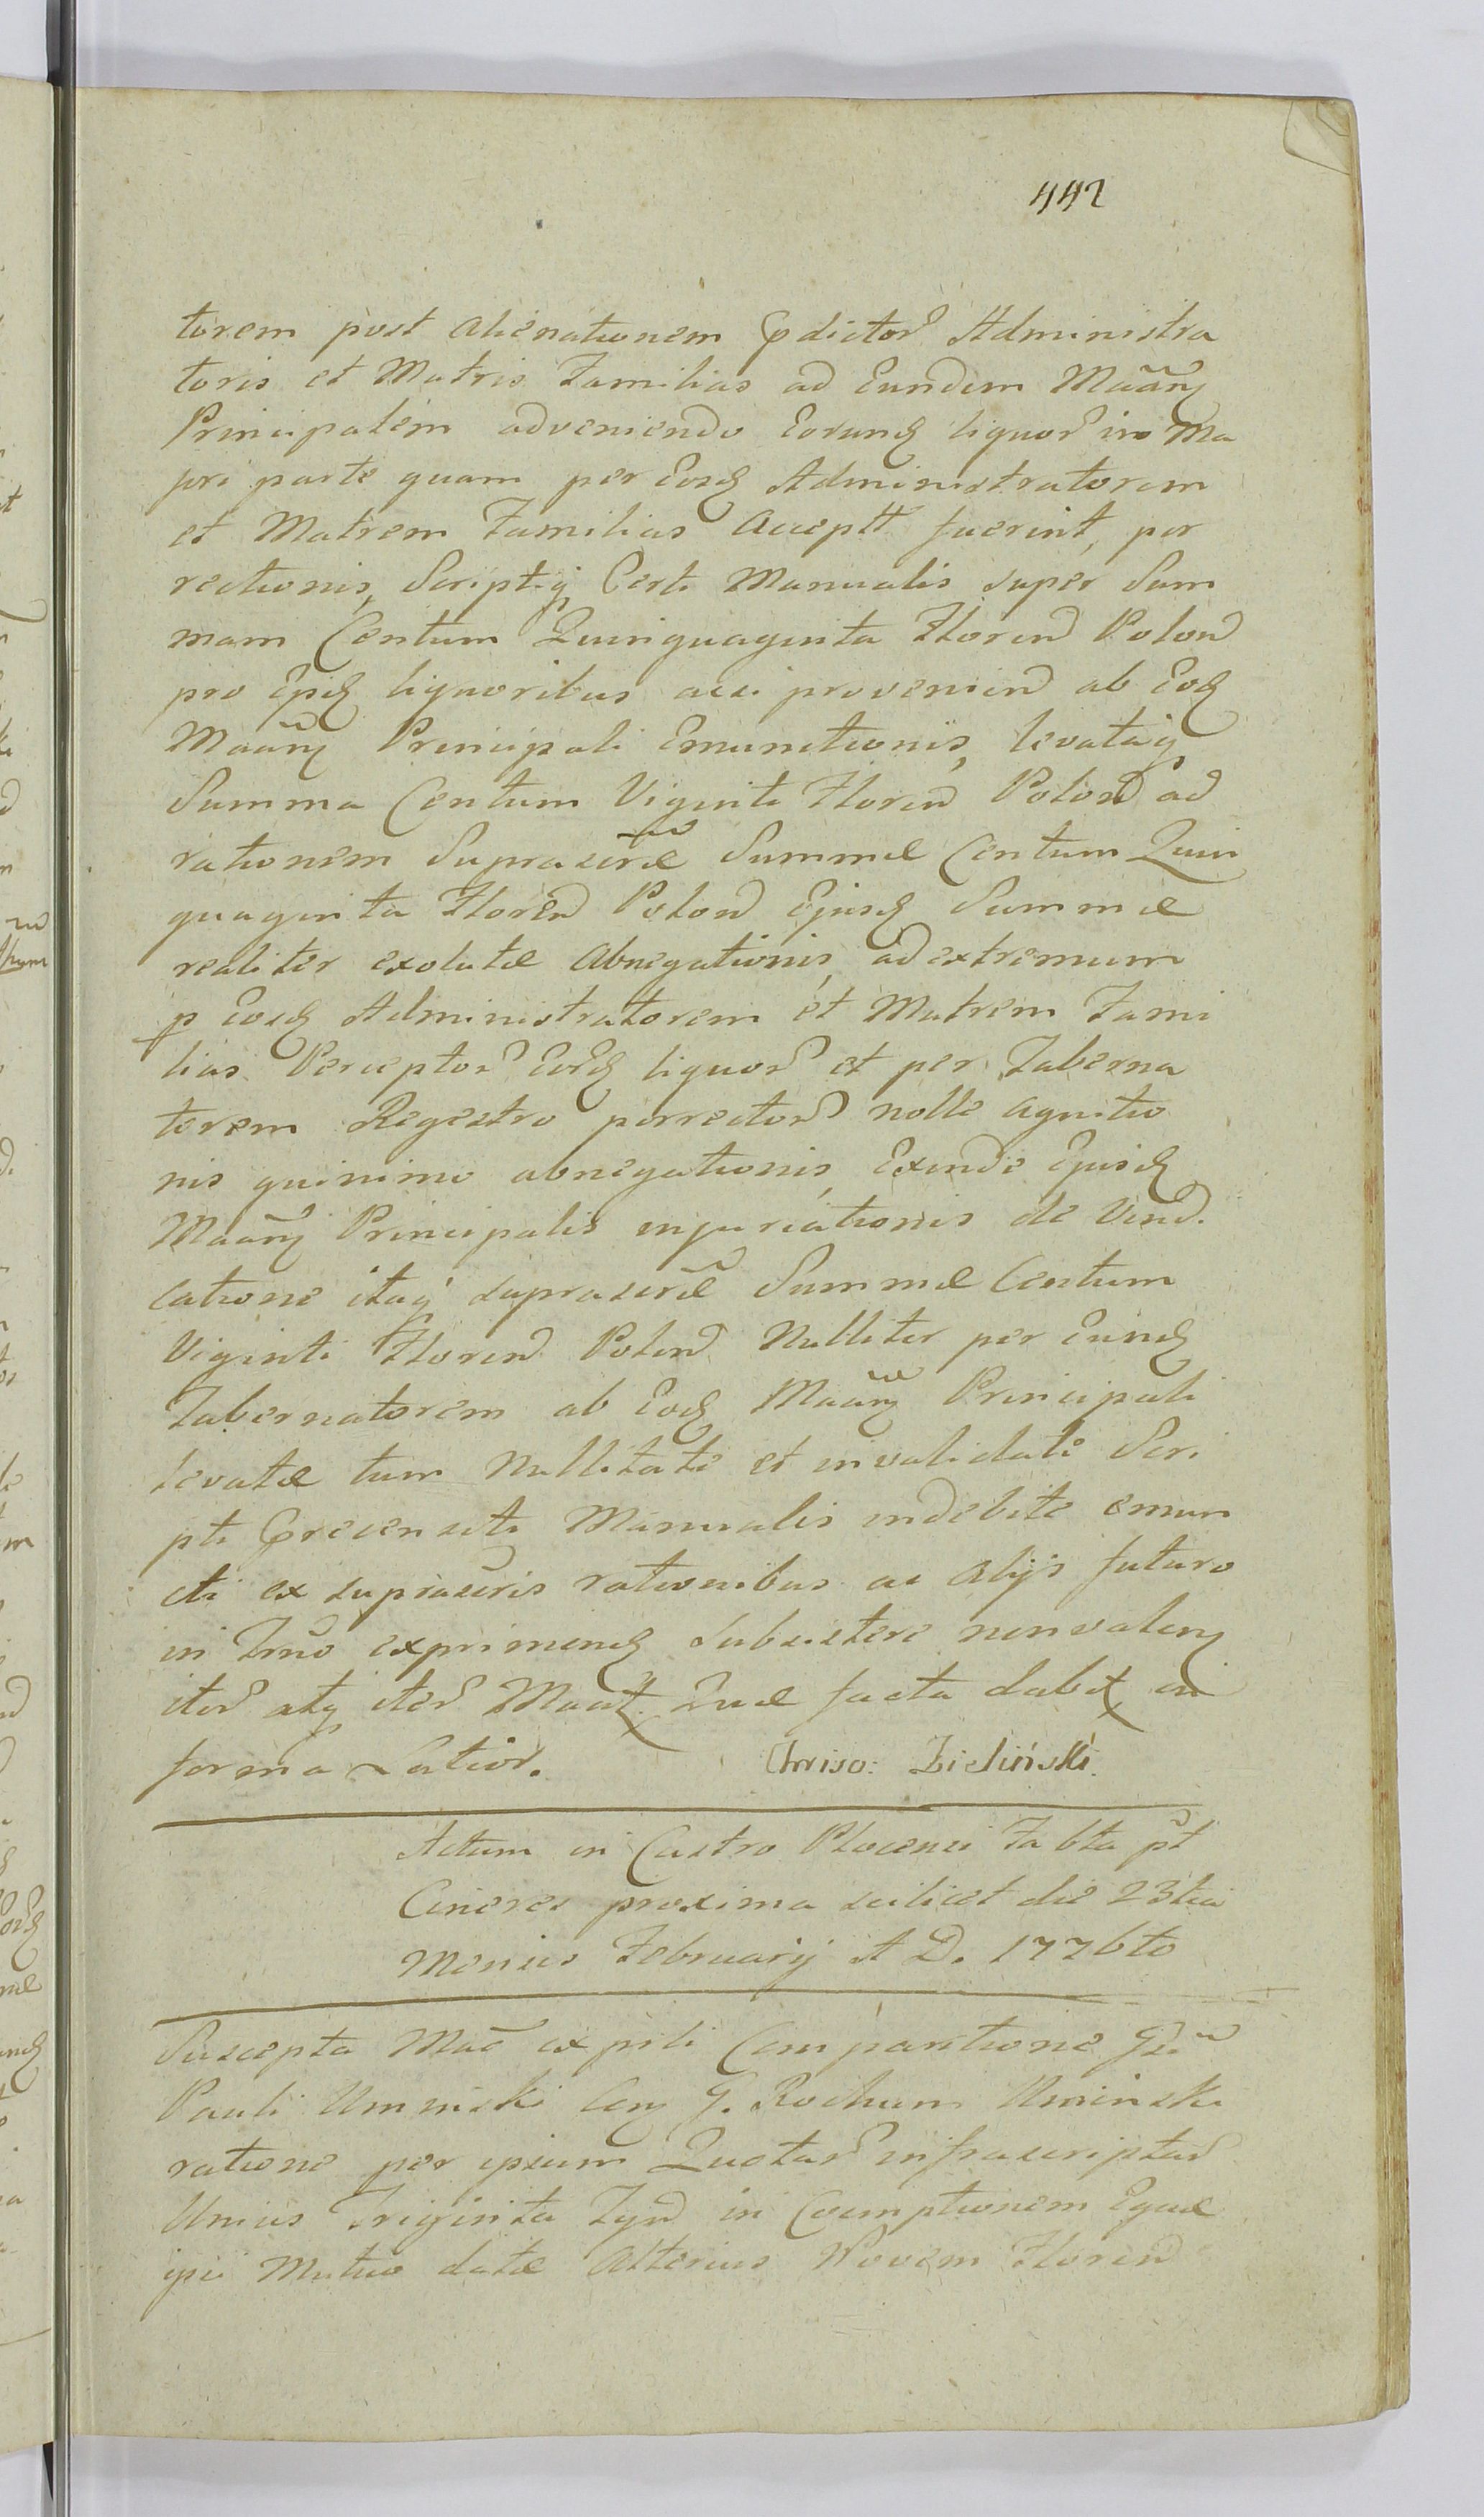 442
torem post alienationem Pdictor Administra
toris et Matris Familias ad Eundem Maãnq
Principalem adveniendo Eorundq liquor in Ma
jori parte quam per Eosdq Administratorem
et Matrem Familias Acceptt fuerint, por
rectionis, Scriptiq Certi Manualis super Sum
mam Centum Quinquaginta Floren Polon
pro Ejusdq liquoribus acsi provenien ab Eodq
Maãnq Principali Emunctionis, levataq
Summa Centum Viginti Floren Polon ad
rationem Suprascræ Summæ Centum Quin
quaginta Floren Polon Ejusdq Summæ
realiter exolutæ Abnegationis, ad extremum
p Eosdq Administratorem et Matrem Fami
lias Perceptor Eordq liquor et per Taberna
torem Regestro porrector nolle agnitio
nis quinimo abnegationis, Exinde Ejusdq
Maãnq Principalis injuriationis de Vind.
catione itaq suprascræ Summæ Centum
Viginti Floren Polon Nulliter per Eundq
Tabernatorem ab Eodq Maãnq Principali
levatæ tum Nullitate et invalidate Scri
pti Precensiti Manualis indebite emun
cti ex suprascris rationibus ac alijs futuro
in Trno exprimendq Subsistere nonvalenq
iter atq iter Maãt. Quæ facta dabit in
forma Latior. Chriso: Zieliński.
Actum in Castro Plocensi Fabta pt
Cineres proxima scilicet die 23tia
Mensis Februarij A D. 1776to
Suscepta Mac ex psti Comparitione Gsi
Pauli Uminski Cony G. Rochum Uminski
ratione per ipsum Quotar infrascriptar
Unius Triginta Tynf in Coemptionem Equæ
ipsi Mutuo datæ Alterius Novem Floren